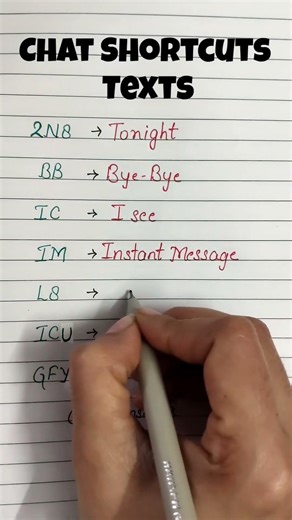 CHAT SHORTCUTS
TEXTS
2N8 → Tonight
BB → Bye-Bye
IC → I see
IM → Instant Message
L8 →
ICU →
GFY